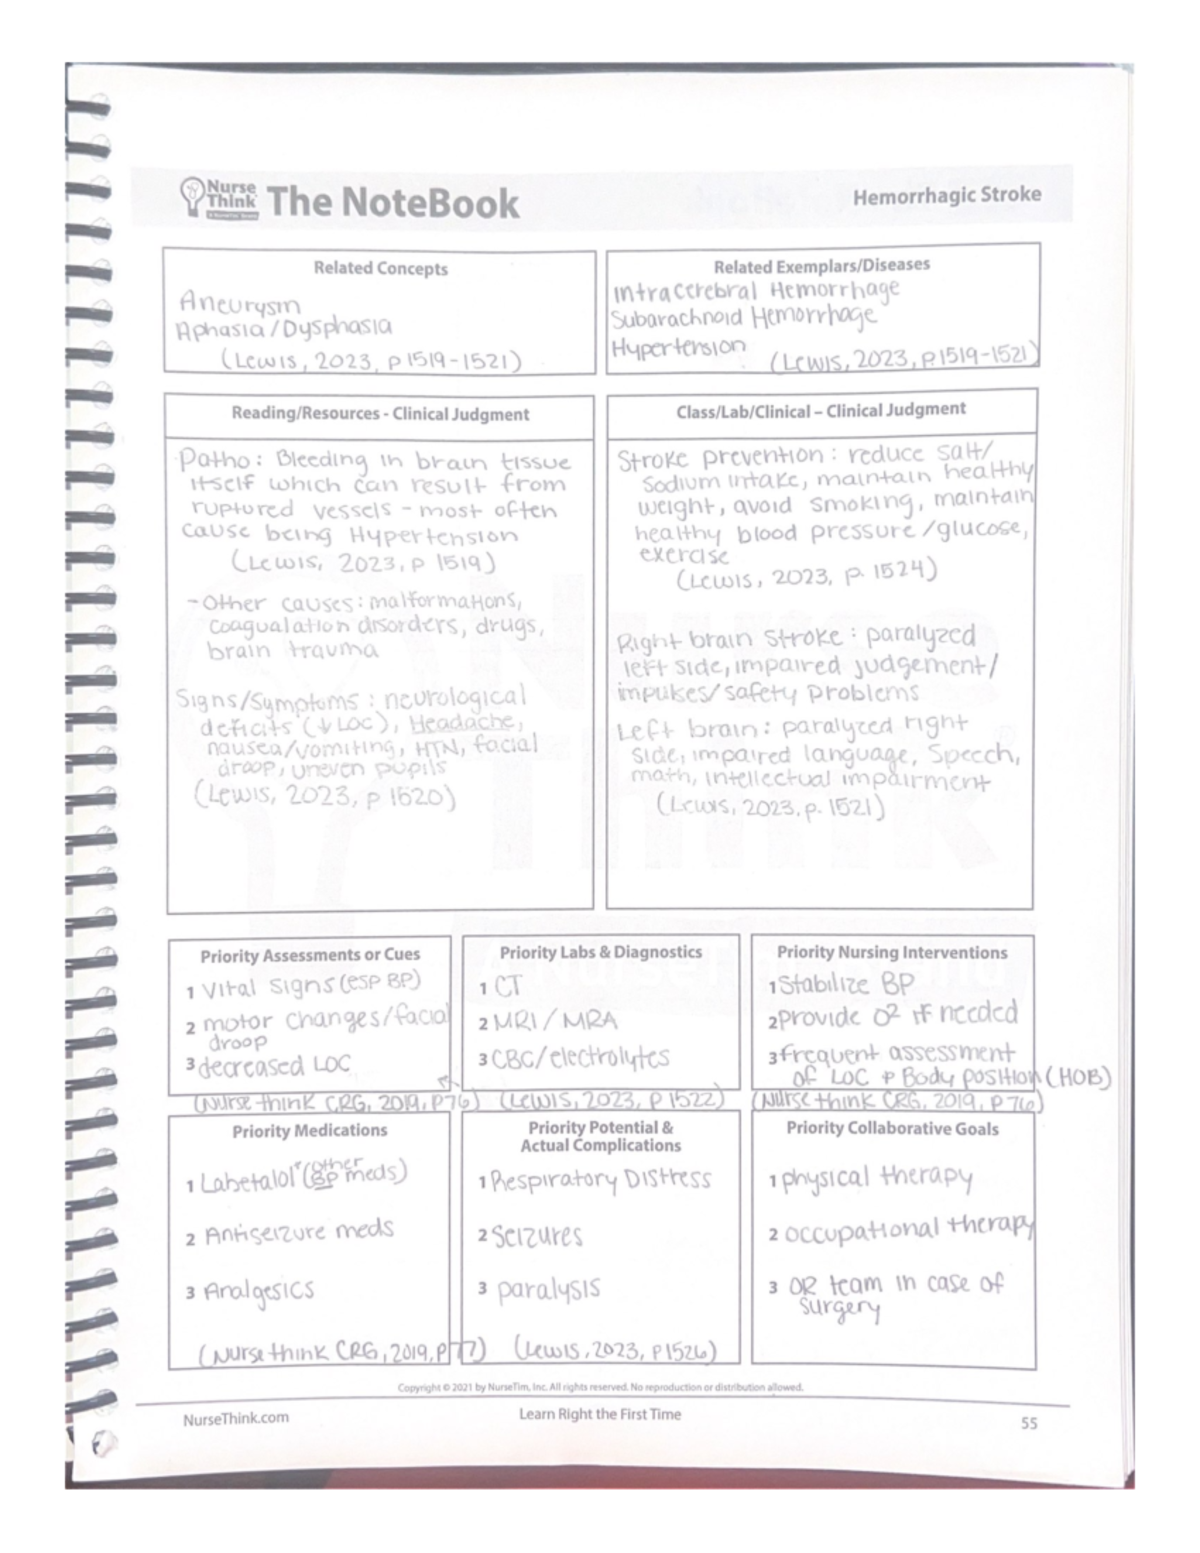 Nurse
Think
The NoteBook
Hemorrhagic Stroke
Related Concepts
Aneurysm
Aphasia/Dysphasia
(Lewis, 2023, p 1519-1521)
Related Exemplars/Diseases
Intracerebral Hemorrhage
Subarachnoid Hemorrhage
Hypertension
(Lewis, 2023, p.1519-1521)
Reading/Resources - Clinical Judgment
Patho: Bleeding in brain tissue
itself which can result from
ruptured vessels - most often
cause being Hypertension
(Lewis, 2023, p 1519)
-Other causes: malformations,
coagualation disorders, drugs,
brain trauma
Signs/Symptoms: neurological
deficits (↓ LOC), Headache,
nausea/vomiting, HTN, facial
droop, uneven pupils
(Lewis, 2023, p 1520)
Class/Lab/Clinical – Clinical Judgment
Stroke prevention: reduce salt/
sodium intake, maintain healthy
weight, avoid smoking, maintain
healthy blood pressure/glucose,
exercise
(Lewis, 2023, p. 1524)
Right brain stroke: paralyzed
left side, impaired judgement/
impulses/safety problems
Left brain: paralyzed right
side, impaired language, speech,
math, intellectual impairment
(Lewis, 2023, p. 1521)
Priority Assessments or Cues
1 Vital signs (esp BP)
2 motor changes/facial
droop
3 decreased LOC
(Nurse think CRG, 2019, P76)
Priority Labs & Diagnostics
1 CT
2 MRI/MRA
3 CBC/electrolytes
(Lewis, 2023, P 1522)
Priority Nursing Interventions
1 Stabilize BP
2 provide O² if needed
3 frequent assessment
of LOC + Body position (HOB)
(Nurse think CRG, 2019, P 76)
Priority Medications
1 Labetalol (other
BP meds)
2 Antiseizure meds
3 Analgesics
(Nurse think CRG, 2019, P77)
Priority Potential &
Actual Complications
1 Respiratory Distress
2 Seizures
3 paralysis
(Lewis, 2023, P1526)
Priority Collaborative Goals
1 physical therapy
2 occupational therapy
3 OR team in case of
surgery
Copyright © 2021 by NurseTim, Inc. All rights reserved. No reproduction or distribution allowed.
NurseThink.com
Learn Right the First Time
55